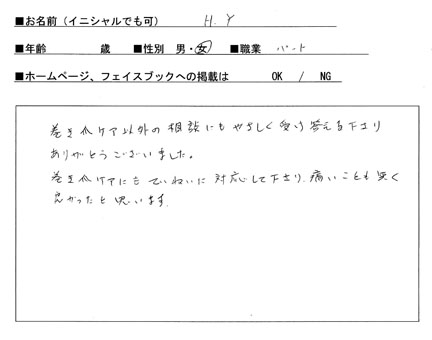 ■お名前（イニシャルでも可） H.Y
■年齢 歳 ■性別 男・女 ■職業 パート
■ホームページ、フェイスブックへの掲載は OK / NG
巻き爪ケア以外の相談にもやさしく受け答える下さり
ありがとうございました。
巻き爪ケアにもていねいに対応して下さり、痛いことも無く
良かったと思います。